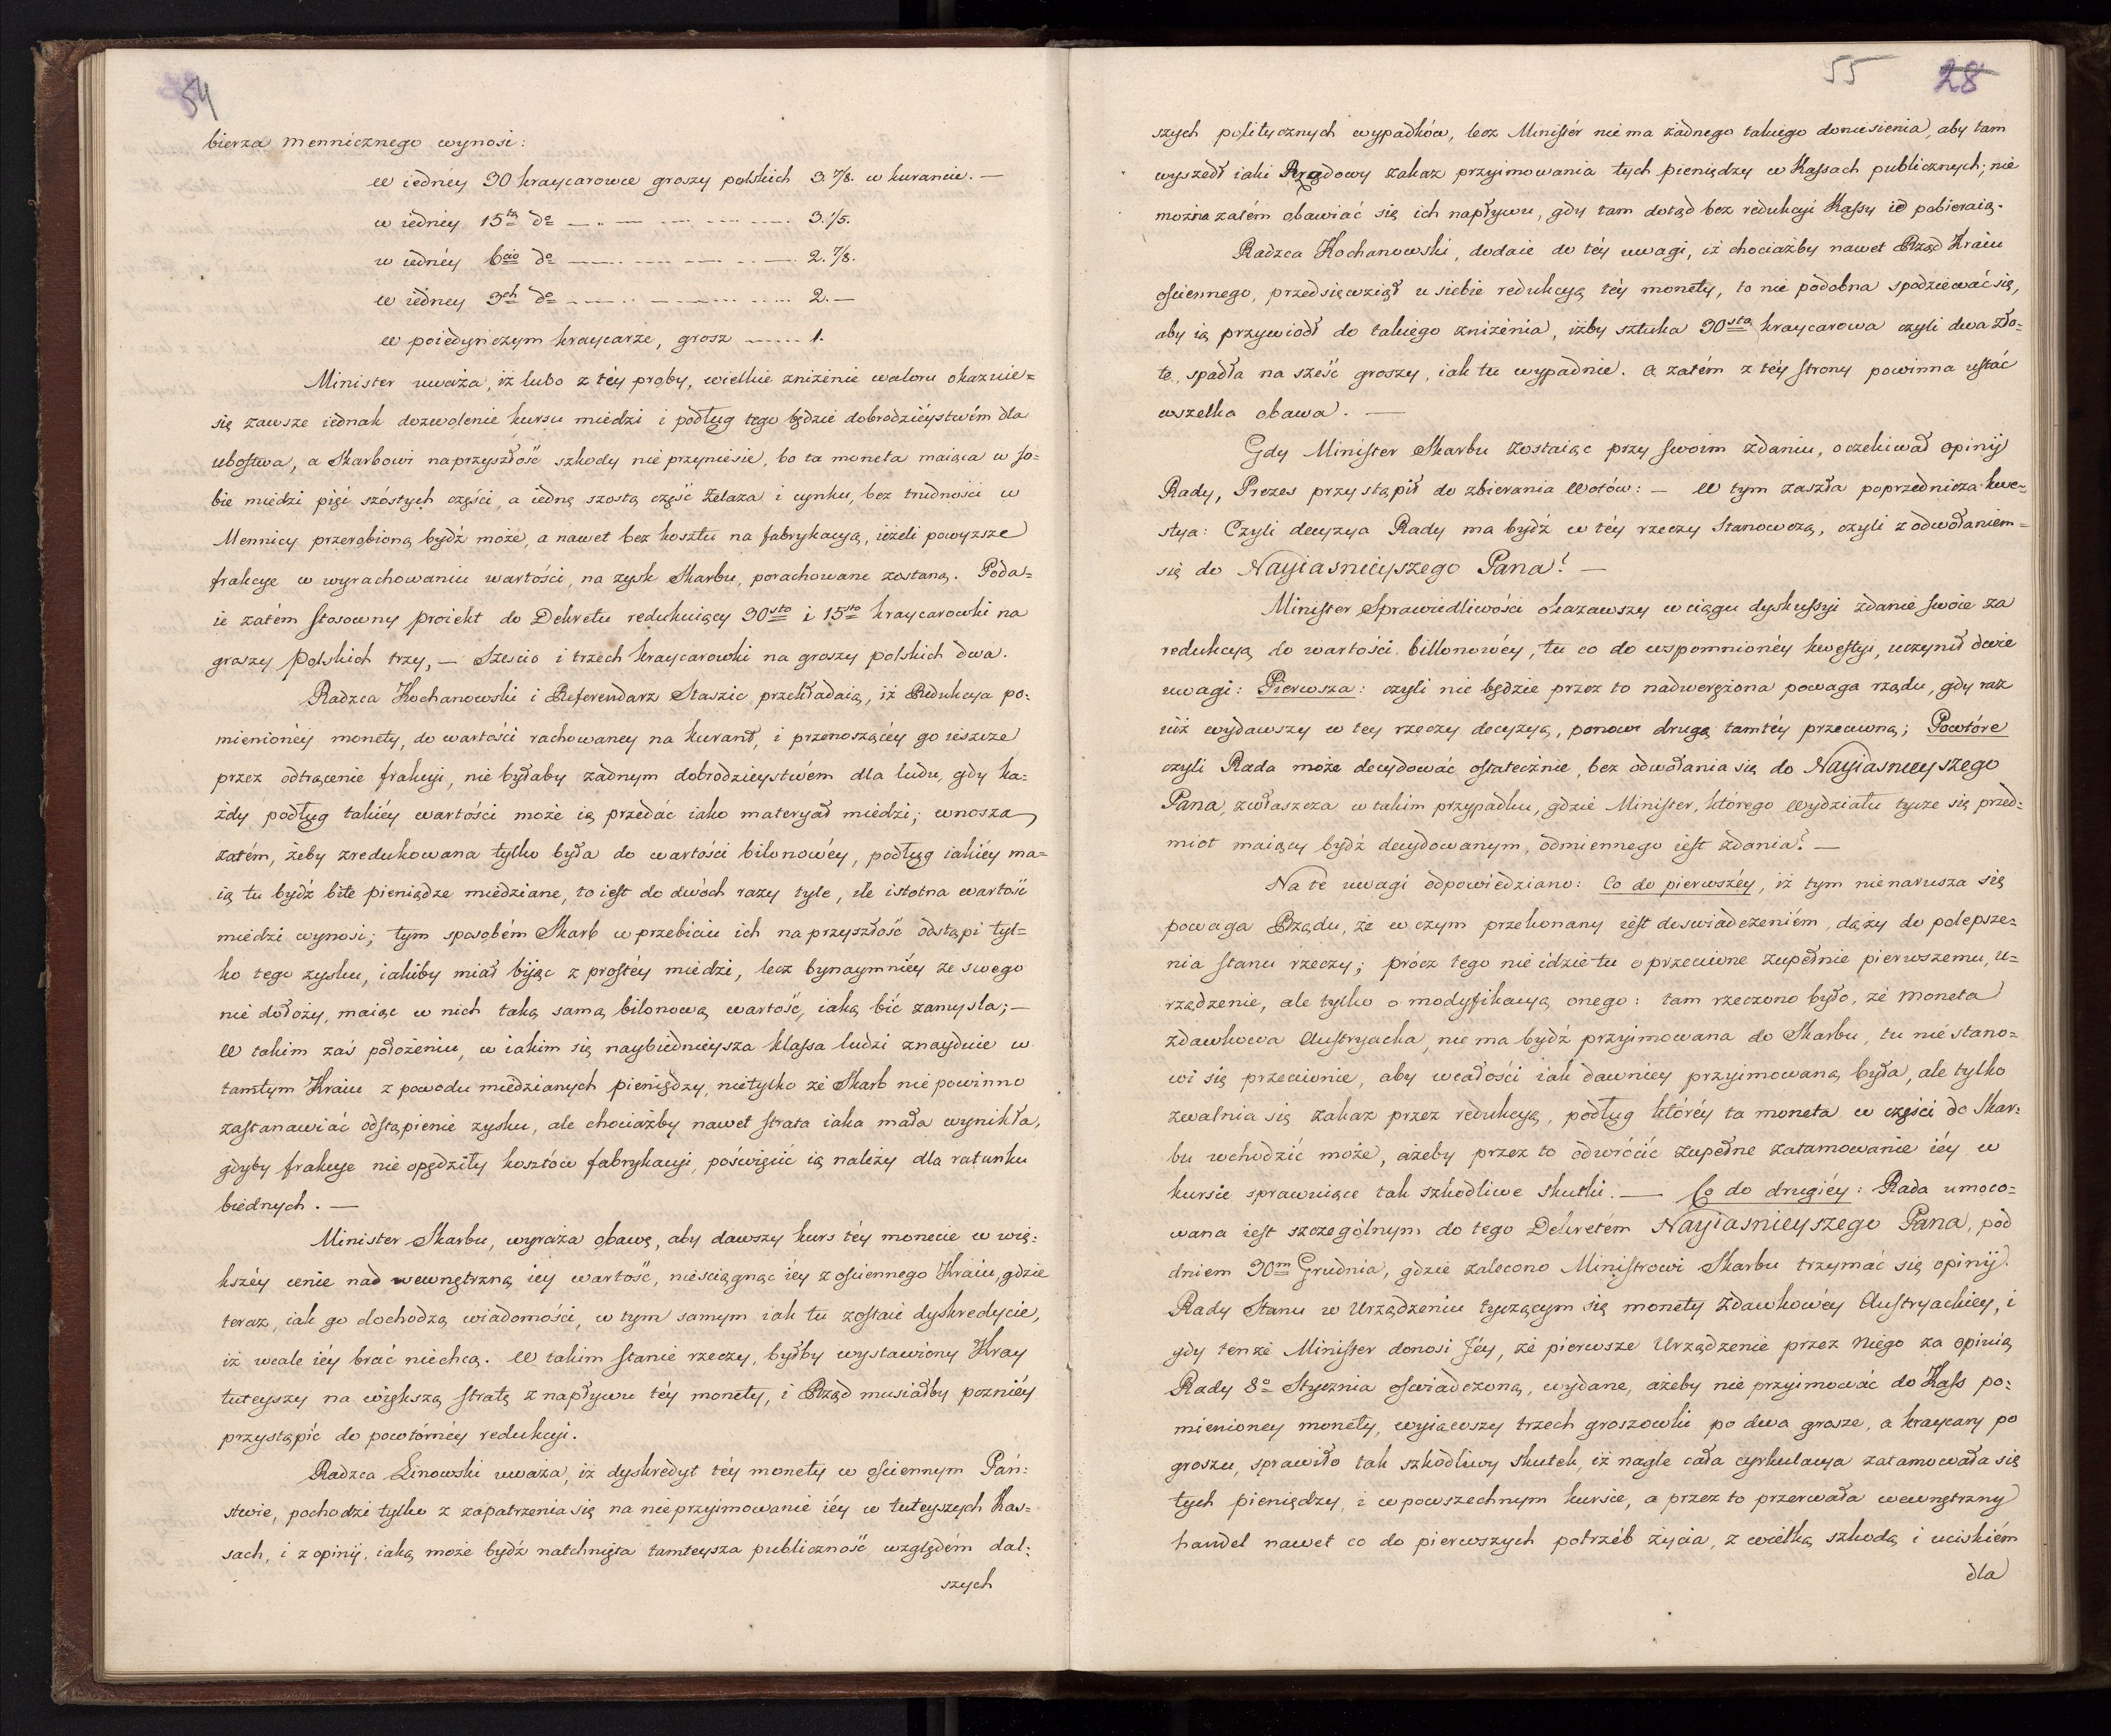 54
bierza mennicznego wynosi:
W iednéy 30 kraycarowce groszy polskich 3. 7/8. w kurancie. —
w iednéy 15tą do — — — 3. 1/5.
w iednéy 6cio do — — — 2. 7/8.
w iedney 3ch do — — — 2. —
W poiedyńczym kraycarze, grosz — 1.
Minister uważa, iż lubo z téy proby, wielkie zniżenie waloru okazuie=
się zawsze iednak dozwolenie kursu miedzi i podług tego będzie dobrodzieystwém dla
ubostwa, a Skarbowi naprzyszłość szkody nie przyniesie, bo ta moneta maiąca w so=
bie miedzi pięć szóstych części, a iedną szostą część żelaza i cynku, bez trudności w
Mennicy przerobioną bydź może, a nawet bez kosztu na fabrykacyą, ieżeli powyższe
frakcye w wyrachowaniu wartości, na zysk Skarbu, porachowane zostaną. Poda=
ie zatém stosowny proiekt do Dekretu redukuiący 30sto i 15sto kraycarowki na
groszy Polskich trzy, — Szescio i trzech kraycarowki na groszy polskich dwa.
Radzca Kochanowski i Referendarz Staszic przekładaią, iż Redukcya po=
mienionéy monety, do wartości rachowaney na kurant, i przenoszącéy go ieszcze
przez odtrącenie frakcyi, nie byłaby żadnym dobrodzieystwém dla ludu, gdy ka=
żdy podług takiéy wartości może ią przedać iako materyał miedzi; wnoszą
zatém, żeby zredukowana tylko była do wartości bilonowéy, podług iakiéy ma=
ią tu bydź bite pieniądze miedziane, to iest do dwóch razy tyle, ile istotna wartość
miedzi wynosi; tym sposobém Skarb w przebiciu ich na przyszłość odstąpi tyl=
ko tego zysku, iakiby miał bijąc z prostéy miedzi, lecz bynaymniéy ze swego
nie dołoży, maiąc w nich taką samą bilonową wartość, iaką bić zamysla; —
W takim zaś położeniu, w iakim się naybiednieysza klassa ludzi znayduie w
tamtym Kraiu z powodu miedzianych pieniędzy, nietylko że Skarb nie powinno
zastanawiać odstąpienie zysku, ale chociażby nawet strata iaka mała wynikła,
gdyby frakcye nie opędziły kosztów fabrykacyi, poświęcić ią należy dla ratunku
biednych. —
Minister Skarbu, wyraża obawę, aby dawszy kurs téy monecie w wię=
kszéy cenie nad wewnętrzną iey wartość, nieściągnąć iéy z ościennego Kraiu, gdzie
teraz, iak go dochodzą wiadomości, w tym samym iak tu zostaie dyskredycie,
iż wcale iéy brać niechcą. W takim stanie rzeczy, byłby wystawiony Kray
tuteyszy na większą stratę z napływu téy monety, i Rząd musiałby pozniéy
przystąpić do powtórnéy redukcyi.
Radzca Linowski uważa, iż dyskredyt téy monety w ościennym Pań=
stwie, pochodzi tylko z zapatrzenia się na nieprzyimowanie iéy w tuteyszych Kas=
sach, i z opinij. iaką może bydź natchnięta tamteysza publiczność względém dal=
szych
55 28
szych politycznych wypadków, lecz Ministér nie ma żadnego takiego doniesienia, aby tam
wyszedł iaki Rządowy zakaz przyimowania tych pieniędzy w Kassach publicznych; nie
można zatém obawiać się ich napływu, gdy tam dotąd bez redukcyi Kassy ie pobieraią.
Radzca Kochanowski, dodaie do téy uwagi, iż chociażby nawet Rząd Kraiu
ościennego, przedsięwziął u siebie redukcyą téy monety, to nie podobna spodziewać się,
aby ią przywiodł do takiego zniżenia, iżby sztuka 30sto kraycarowa czyli dwa zło=
te, spadła na sześć groszy, iak tu wypadnie. A zatém z téy strony powinna ustać
wszelka obawa. —
Gdy Minister Skarbu zostaiąc przy swoim zdaniu, oczekiwał opinij
Rady, Prezes przystąpił do zbierania Wotów: — W tym zaszła poprzednicza kwe=
stya: Czyli decyzya Rady ma bydź w téy rzeczy Stanowczą, czyli z odwołaniem=
się do Nayiasnieyszego Pana? —
Minister Sprawiedliwości okazawszy w ciągu dyskussyi zdanie swoie za
redukcyą do wartości billonowéy, tu co do wspomnionéy kwestyi, uczynił dwie
uwagi: Pierwsza: czyli nie będzie przez to nadwerężona powaga rządu, gdy raz
iuż wydawszy w tey rzeczy decyzyą, ponowi drugą tamtéy przeciwną; Powtóre
czyli Rada może decydować ostatecznie, bez odwołania się do Nayiasnieyszego
Pana, zwłaszcza w takim przypadku, gdzie Minister, którego Wydziału tycze się przed=
miot maiący bydź decydowanym, odmiennego iest zdania? —
Na te uwagi odpowiedziano: Co do pierwszéy, iż tym nienarusza się
powaga Rządu, że w czym przekonany iest doswiadczeniém, dąży do polepsze=
nia stanu rzeczy; prócz tego nie idzie tu o przeciwne zupełnie pierwszemu, u=
rządzenie, ale tylko o modyfikacyą onego: tam rzeczono było, że moneta
zdawkowa Austryacka, nie ma bydź przyimowana do Skarbu, tu nie stano=
wi się przeciwnie, aby wcałości iak dawniey przyimowaną była, ale tylko
zwalnia się zakaz przez redukcyą, podług któréy ta moneta w części do Skar=
bu wchodzić może, ażeby przez to odwrócić zupełne zatamowanie iéy w
kursie sprawuiące tak szkodliwe skutki. — Co do drugiéy: Rada umoco=
wana iest szczególnym do tego Dekretém Nayiasnieyszego Pana, pod
dniem 30m Grudnia, gdzie zalecono Ministrowi Skarbu trzymać się opinij.
Rady Stanu w Urządzeniu tyczącym się monety Zdawkowéy Austryackiey, i
gdy tenże Minister donosi Jéy, że pierwsze Urządzenie przez Niego za opinią
Rady 8o Stycznia oświadczoną, wydane, ażeby nie przyimować do Kass po=
mienioney monety, wyiąwszy trzech groszowki po dwa grosze, a kraycary po
groszu, sprawiło tak szkodliwy skutek, iż nagle cała cyrkulacya zatamowała się
tych pieniędzy, i w powszechnym kursie, a przez to przerwała wewnętrzny
handel nawet co do pierwszych potrzéb życia, z wielką szkodą i uciskiém
dla